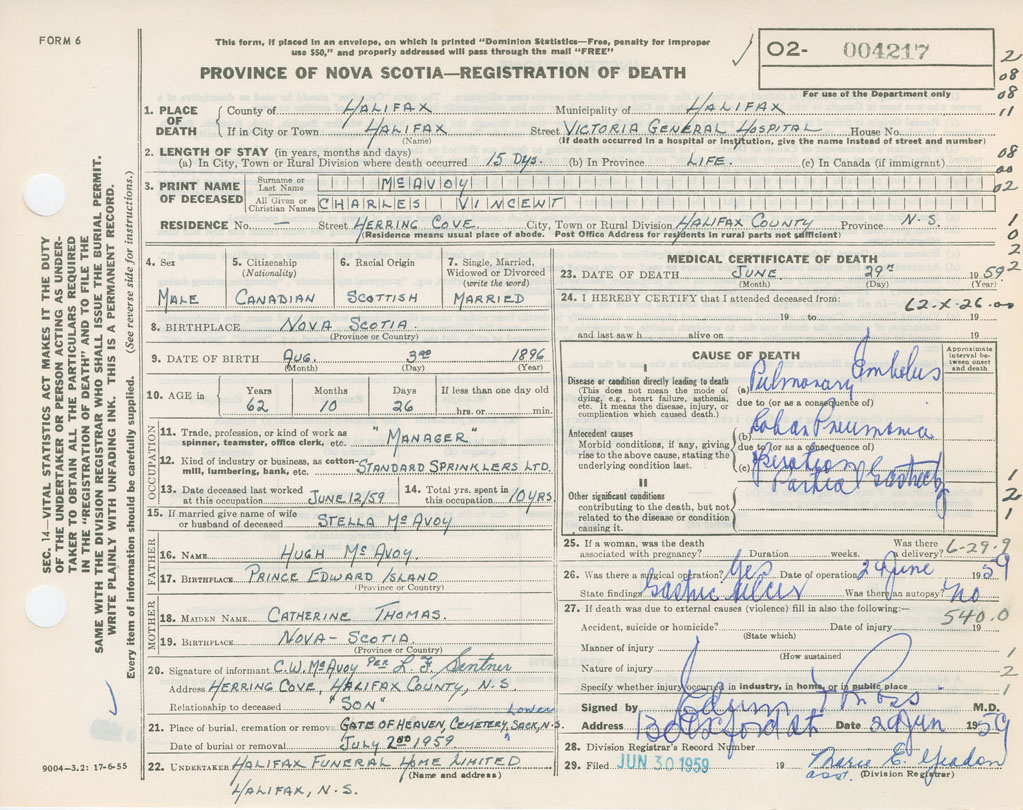 FORM 6
This form, if placed in an envelope, on which is printed "Dominion Statistics—Free, penalty for improper
use $50," and properly addressed will pass through the mail "FREE"
PROVINCE OF NOVA SCOTIA—REGISTRATION OF DEATH
O2- 004217
For use of the Department only
2
08
08
11
08
00
02
1
0
2
2
1. PLACE OF DEATH
County of HALIFAX Municipality of HALIFAX
If in City or Town HALIFAX Street VICTORIA GENERAL HOSPITAL House No.
(Name) (If death occurred in a hospital or institution, give the name instead of street and number)
2. LENGTH OF STAY (in years, months and days)
(a) In City, Town or Rural Division where death occurred 15 DYS. (b) In Province LIFE. (c) In Canada (if immigrant)
3. PRINT NAME OF DECEASED
Surname or Last Name McAVOY
All Given or Christian Names CHARLES VINCENT
RESIDENCE No. — Street HERRING COVE City, Town or Rural Division HALIFAX COUNTY Province N.S.
(Residence means usual place of abode. Post Office Address for residents in rural parts not sufficient)
SEC. 14—VITAL STATISTICS ACT MAKES IT THE DUTY
OF THE UNDERTAKER OR PERSON ACTING AS UNDER-
TAKER TO OBTAIN ALL THE PARTICULARS REQUIRED
IN THE "REGISTRATION OF DEATH" AND TO FILE THE
SAME WITH THE DIVISION REGISTRAR WHO SHALL ISSUE THE BURIAL PERMIT.
WRITE PLAINLY WITH UNFADING INK. THIS IS A PERMANENT RECORD.
Every item of information should be carefully supplied. (See reverse side for instructions.)
4. Sex 5. Citizenship (Nationality) 6. Racial Origin 7. Single, Married, Widowed or Divorced (write the word)
MALE CANADIAN SCOTTISH MARRIED
8. BIRTHPLACE NOVA SCOTIA.
(Province or Country)
9. DATE OF BIRTH AUG. 3RD 1896
(Month) (Day) (Year)
10. AGE in Years Months Days If less than one day old
62 10 26 hrs. or min.
OCCUPATION
11. Trade, profession, or kind of work as spinner, teamster, office clerk, etc. "MANAGER"
12. Kind of industry or business, as cotton-mill, lumbering, bank, etc. STANDARD SPRINKLERS LTD.
13. Date deceased last worked at this occupation JUNE 12/59 14. Total yrs. spent in this occupation 10 YRS.
15. If married give name of wife or husband of deceased STELLA McAVOY
FATHER
16. NAME HUGH McAVOY.
17. BIRTHPLACE PRINCE EDWARD ISLAND
(Province or Country)
MOTHER
18. MAIDEN NAME CATHERINE THOMAS.
19. BIRTHPLACE NOVA-SCOTIA.
(Province or Country)
20. Signature of informant C.W. McAVOY PER L.F. Sentner
Address HERRING COVE, HALIFAX COUNTY, N.S.
Relationship to deceased "SON"
Lower
21. Place of burial, cremation or removal GATE OF HEAVEN, CEMETERY, SACK, N.S.
Date of burial or removal JULY 2ND 1959
22. UNDERTAKER HALIFAX FUNERAL HOME LIMITED
(Name and address)
HALIFAX, N.S.
9004-3.2: 17-6-55
MEDICAL CERTIFICATE OF DEATH
23. DATE OF DEATH JUNE 29TH 1959
(Month) (Day) (Year)
24. I HEREBY CERTIFY that I attended deceased from: 62-X-26.00
19 to 19
and last saw h alive on 19
CAUSE OF DEATH
Approximate interval between onset and death
I
Disease or condition directly leading to death
(This does not mean the mode of dying, e.g., heart failure, asthenia, etc. It means the disease, injury, or complication which caused death.)
(a) Pulmonary Embolus
due to (or as a consequence of)
Antecedent causes
Morbid conditions, if any, giving rise to the above cause, stating the underlying condition last.
(b) Lobar Pneumonia
due to (or as a consequence of)
(c) Partial
II
Other significant conditions
contributing to the death, but not related to the disease or condition causing it.
1
2
1
25. If a woman, was the death associated with pregnancy? Duration weeks. Was there a delivery?
6-29-9
26. Was there a surgical operation? Yes Date of operation 24 June 1959
State findings Gastric Ulcer Was there an autopsy? No
27. If death was due to external causes (violence) fill in also the following:—
540.0
Accident, suicide or homicide? Date of injury 19
(State which)
Manner of injury
(How sustained)
Nature of injury
Specify whether injury occurred in industry, in home, or in public place
1
2
1
Signed by Edwin Ross M.D.
Address Date 29 Jun 1959
28. Division Registrar's Record Number
29. Filed JUN 30 1959 19 Marie E.
asst. (Division Registrar)